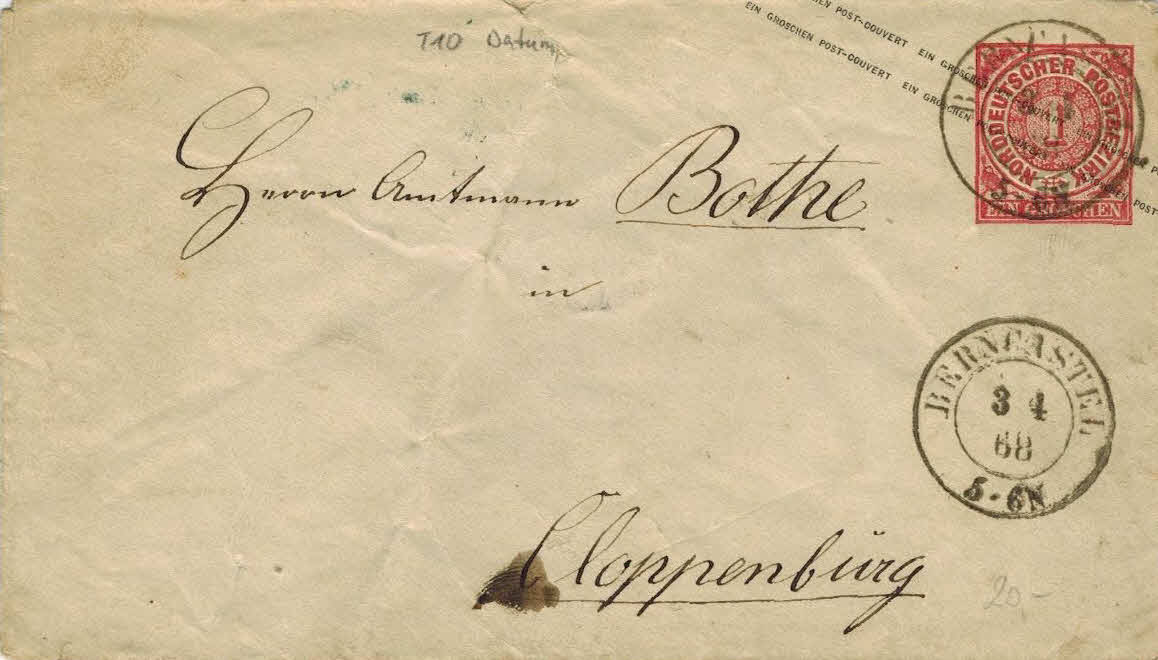 T10 Datum
EIN GROSCHEN POST-COUVERT EIN GROSCHEN
EIN GROSCHEN POST-COUVERT EIN GROSCHEN
NORDDEUTSCHER POSTBEZIRK
1
EIN GROSCHEN
Herrn Amtmann Bothe
in
BERNCASTEL
3 4
68
5-6N
Cloppenburg
20,-